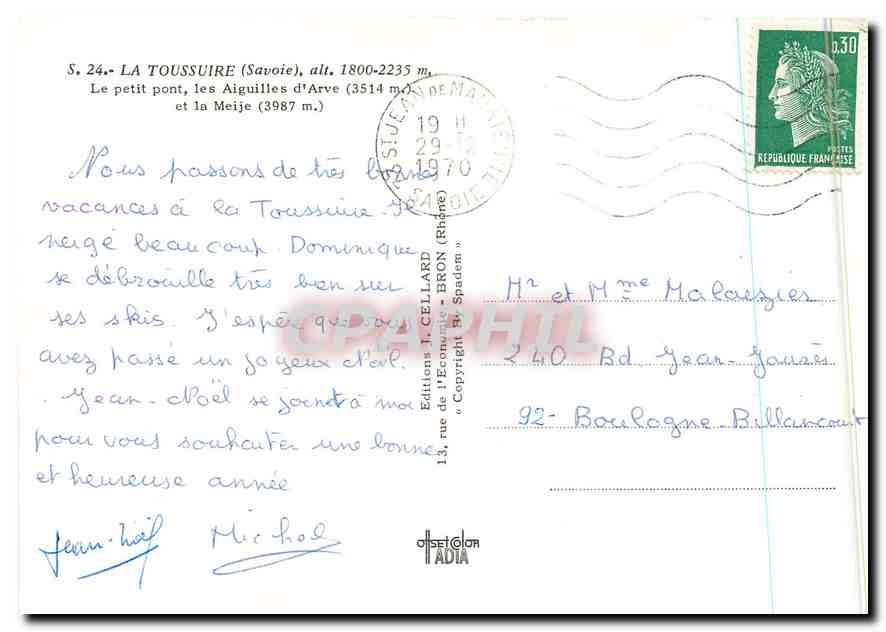 S. 24.- LA TOUSSUIRE (Savoie), alt. 1800-2235 m.
Le petit pont, les Aiguilles d'Arve (3514 m.)
et la Meije (3987 m.)
Nous passons de très bonnes
vacances à la Toussuire. Il
neige beaucoup. Dominique
se débrouille très bien sur
ses skis. J'espère que vous
avez passé un joyeux Noël.
Jean-Noël se joint à moi
pour vous souhaiter une bonne
et heureuse année
Jean-Noël Michel
0.30
POSTES
REPUBLIQUE FRANÇAISE
73 ST JEAN DE MAURIENNE
19 H
29-12
1970
SAVOIE
Editions J. CELLARD
13, rue de l'Economie - BRON (Rhône)
« Copyright By Spadem »
CPAPHIL
Mr et Mme Malaézier
240 Bd Jean-Jaurès
92- Boulogne-Billancourt
OFFSETCOLOR
ADIA